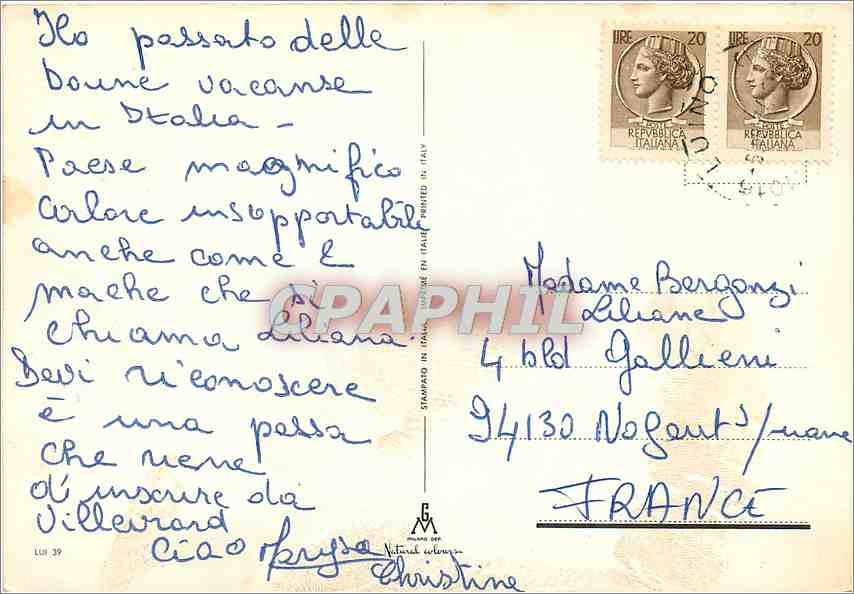 Ho passato delle
boune vacanse
in Italia -
Paese magnifico
calore insopportabile
anche come E
mache che si
chiama Liliana.
Devi riconoscere
è una passa
che viene
d'inscrire da
Villevrard
Ciao Marysa
Christine
LUI 39
STAMPATO IN ITALIA IMPRIMÉ EN ITALIE PRINTED IN ITALY
GM
MILANO DEP.
Natural colours
LIRE 20
POSTE
REPVBBLICA
ITALIANA
LIRE 20
POSTE
REPVBBLICA
ITALIANA
Madame Bergonzi
Liliane
4 bld Gallieni
94130 Nogent s/marne
FRANCE
CPAPHIL